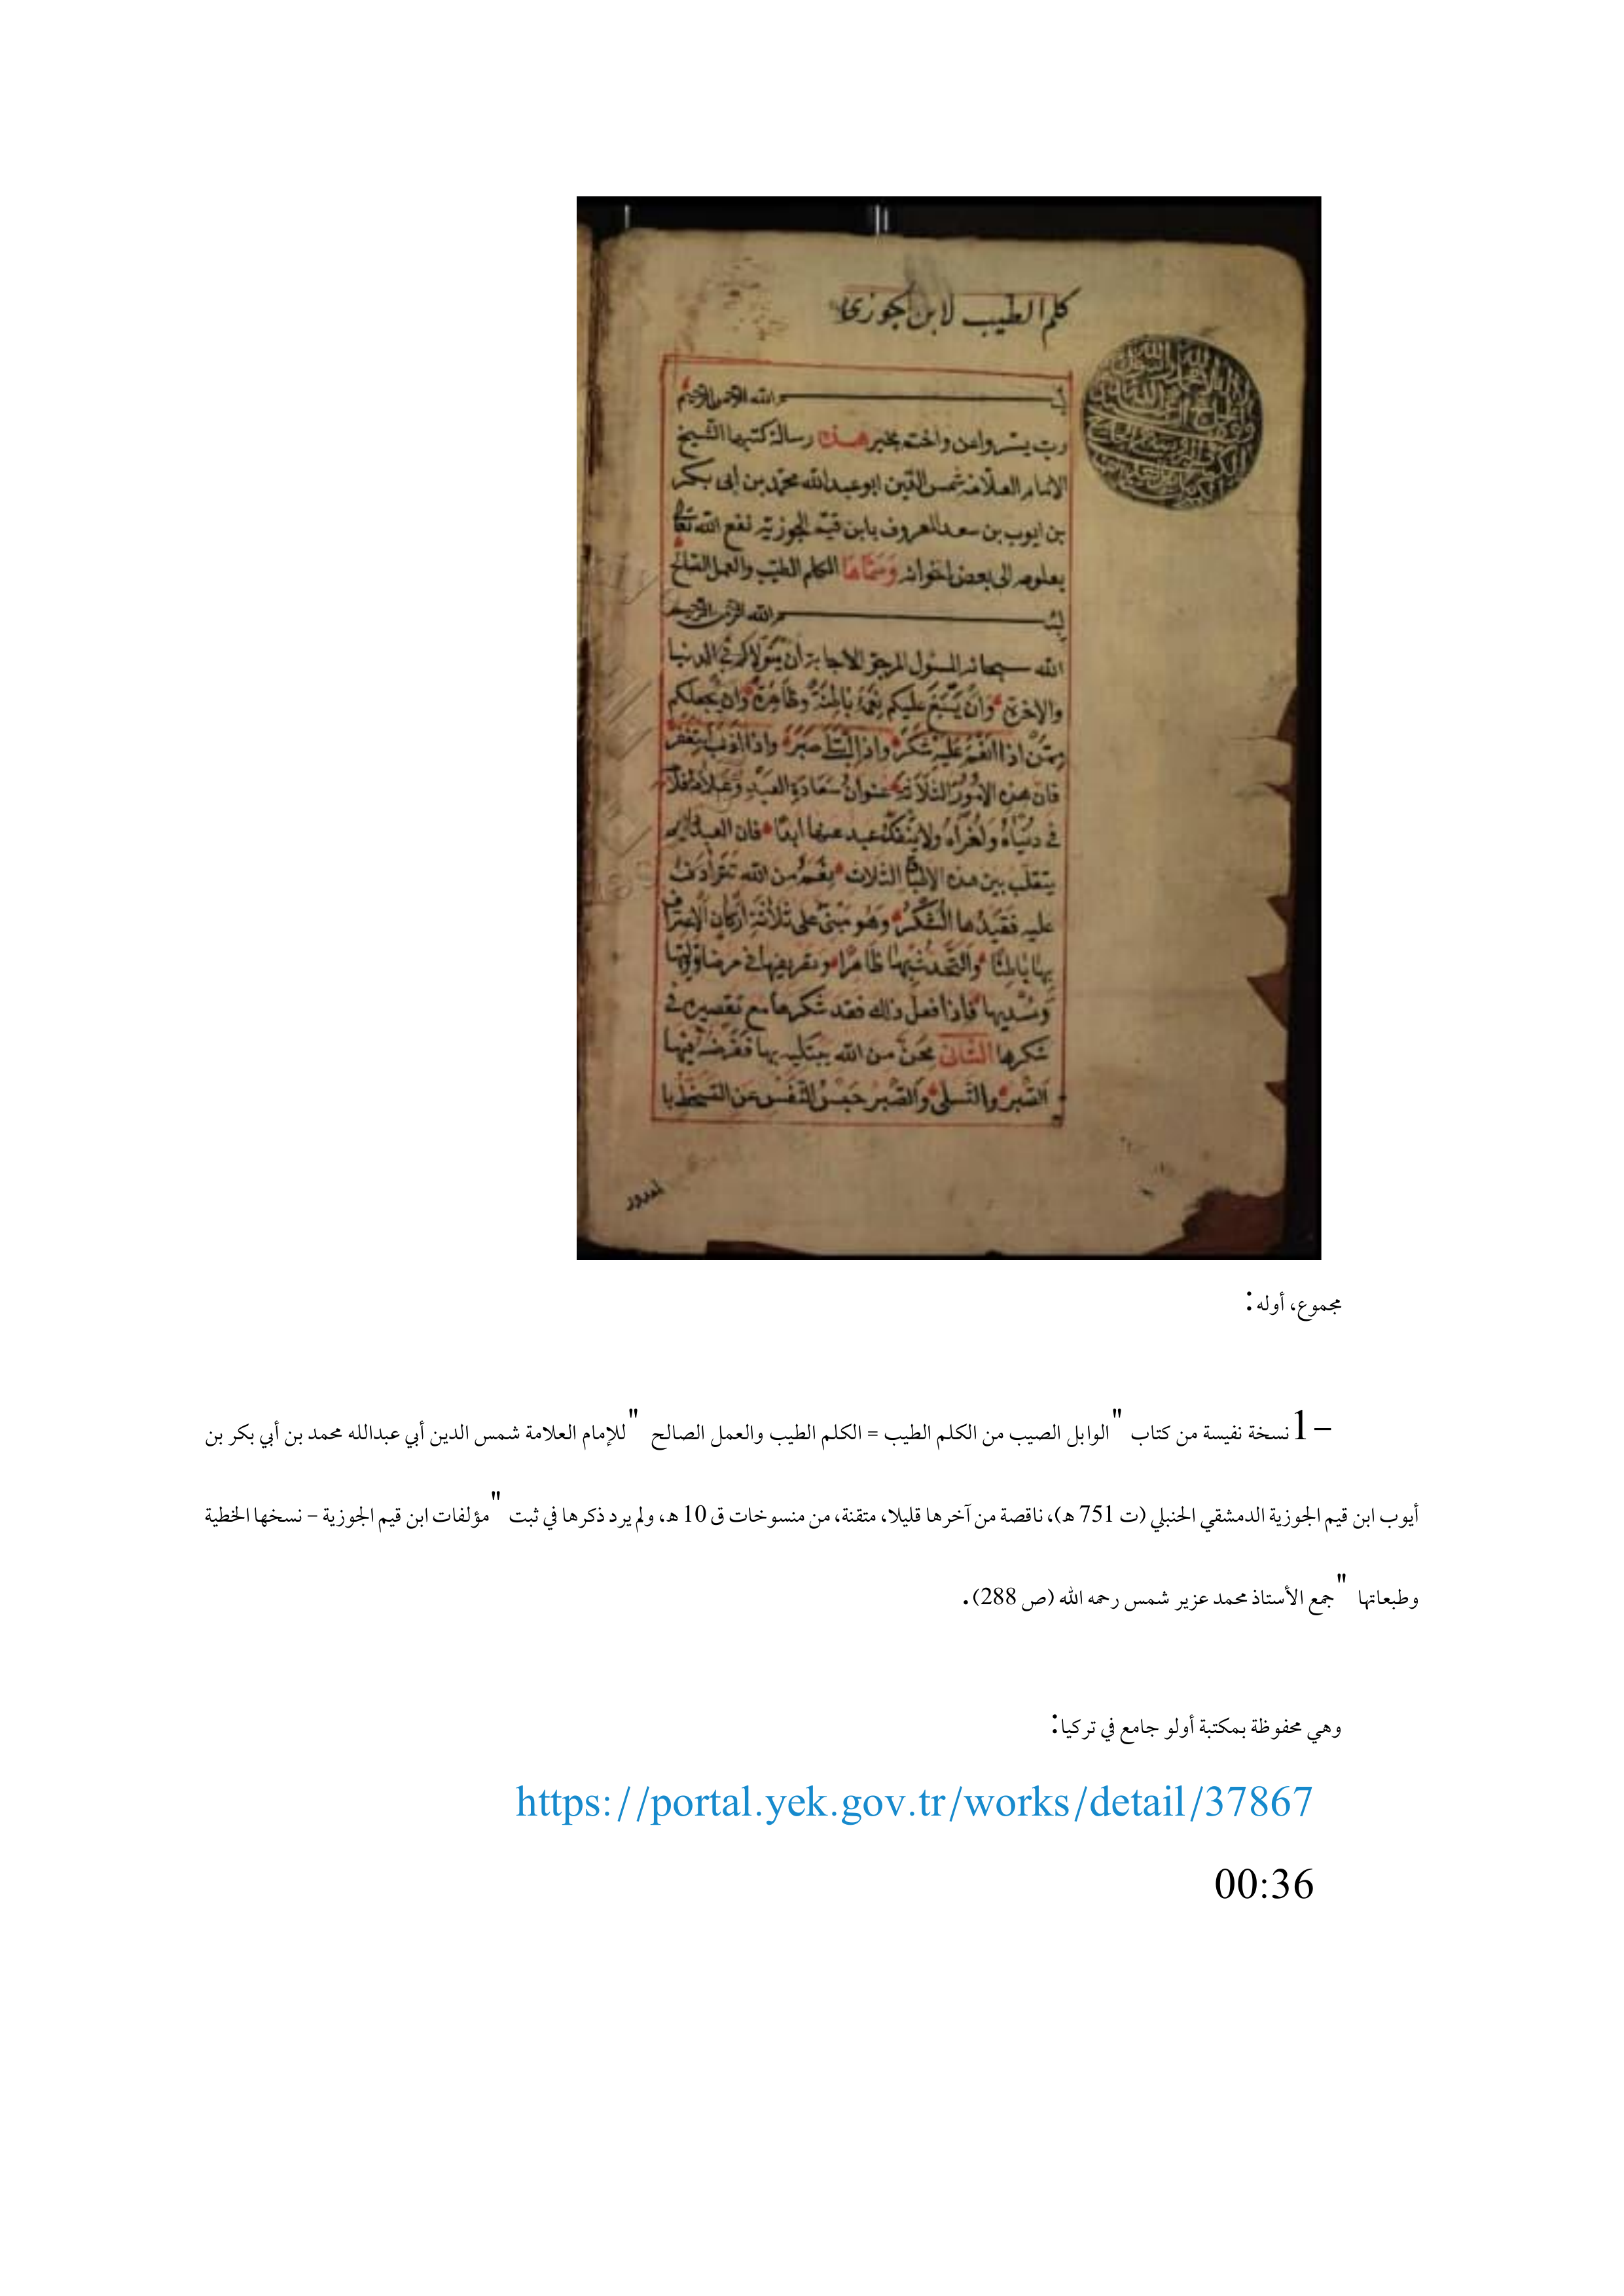 كلم الطيب لابن جوزى
بسم الله الرحمن الرحيم
رب يسر واعن واختم بخير هذه رسالة كتبها الشيخ
الامام العلامة شمس الدين ابو عبدالله محمد بن ابى بكر
بن ايوب بن سعد المعروف بابن قيم الجوزية نفع الله تعالى
بعلومه الى بعض اخوانه وسماها الكلم الطيب والعمل الصالح
بسم الله الرحمن الرحيم
الله سبحانه المسئول المرجو الاجابة أن يتولاكم في الدنيا
والاخرة وأن يسبغ عليكم نعمه باطنة وظاهرة وان يجعلكم
ممن اذا انعم عليه شكر واذا ابتلى صبر واذا اذنب استغفر
فان هذه الامور الثلاثة عنوان سعادة العبد وعلامة فلاحه
في دنياه واخراه ولا ينفك عبد عنها ابدا فان العبد دايم
يتقلب بين هذه الاطباق الثلاث نعم من الله تترادف
عليه فقيدها الشكر وهو مبنى على ثلاثة اركان الاعتراف
بها باطنا والتحدث بها ظاهرا وتصريفها في مرضاة وليها
ومسديها فاذا فعل ذلك فقد شكرها مع تقصيره في
شكرها الثانى محن من الله يبتليه بها ففرضه فيها
الصبر والتسلى والصبر حبس النفس عن التسخط با
مجموع، أوله:
1– نسخة نفيسة من كتاب "الوابل الصيب من الكلم الطيب = الكلم الطيب والعمل الصالح" للإمام العلامة شمس الدين أبي عبدالله محمد بن أبي بكر بن
أيوب ابن قيم الجوزية الدمشقي الحنبلي (ت 751 هـ)، ناقصة من آخرها قليلا، متقنة، من منسوخات ق 10 هـ، ولم يرد ذكرها في ثبت "مؤلفات ابن قيم الجوزية – نسخها الخطية
وطبعاتها" جمع الأستاذ محمد عزير شمس رحمه الله (ص 288).
وهي محفوظة بمكتبة أولو جامع في تركيا:
https://portal.yek.gov.tr/works/detail/37867
00:36